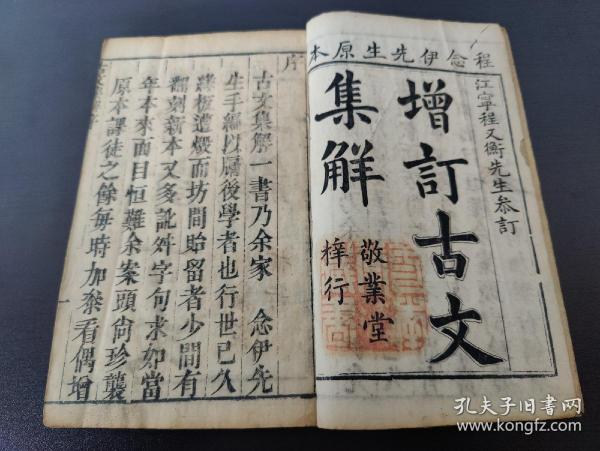 程念伊先生原本
江寧程又衡先生叅訂
增訂古文
集解
敬業堂
梓行
序
古文集解一書乃余家 念伊先
生手編以屬後學者也行世已久
板遭燬而坊間貽留者少間有
翻刻新本又多訛舛字句求如當
年本來面目恒難余案頭尙珍襲
原本課徒之餘每時加叅看偶增
一
孔夫子旧书网
www.kongfz.com